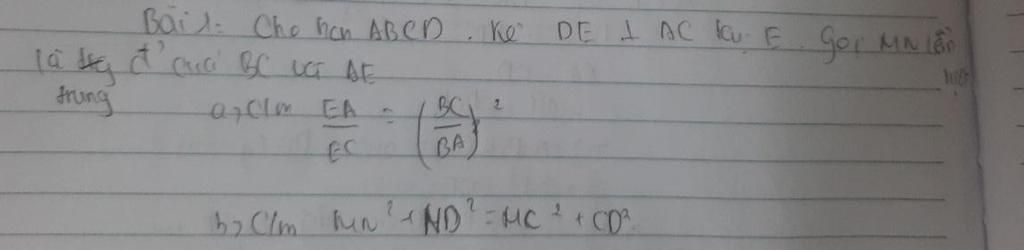 Bài 1: Cho hcn ABCD. Kẻ DE ⊥ AC tại E. Gọi M,N lần
là đ' của BC và AE
trung
hượt
a, C/m EA/EC = (BC/BA)²
b, C/m MN² + ND² = MC² + CD².